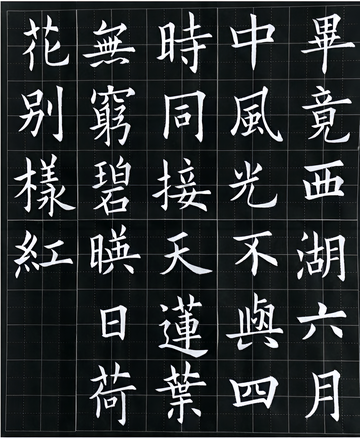 畢竟西湖六月
中風光不與四
時同接天蓮葉
無窮碧暎日荷
花别樣紅